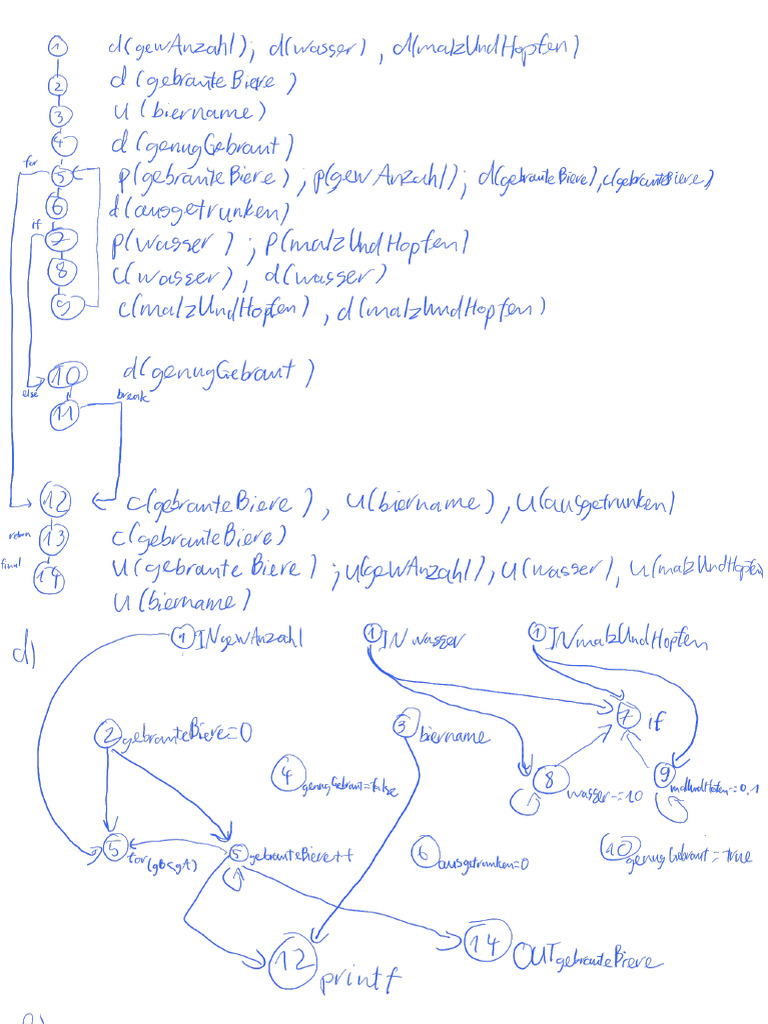 1 d(gewAnzahl); d(wasser), d(malzUndHopfen)
2 d(gebrauteBiere)
3 u(biername)
4 d(genugGebraut)
for 5 p(gebrauteBiere), p(gewAnzahl); d(gebrauteBiere), c(gebrauteBiere)
6 d(ausgetrunken)
if 7 p(wasser); p(malzUndHopfen)
8 c(wasser), d(wasser)
9 c(malzUndHopfen), d(malzUndHopfen)
10 d(genugGebraut)
else break
11
12 c(gebrauteBiere), u(biername), u(ausgetrunken)
return 13 c(gebrauteBiere)
final 14 u(gebrauteBiere); u(gewAnzahl), u(wasser), u(malzUndHopfen
u(biername)
d) 1 INgewAnzahl 1 INwasser 1 INmalzUndHopfen
7 if
2 gebrauteBiere=0 3 biername
4 genugGebraut=false 8 wasser-=10 9 malzUndHopfen-=0,1
5 for(gB<gA) 5 gebrauteBiere++ 6 ausgetrunken=0 10 genugGebraut=true
12 printf 14 OUTgebrauteBiere